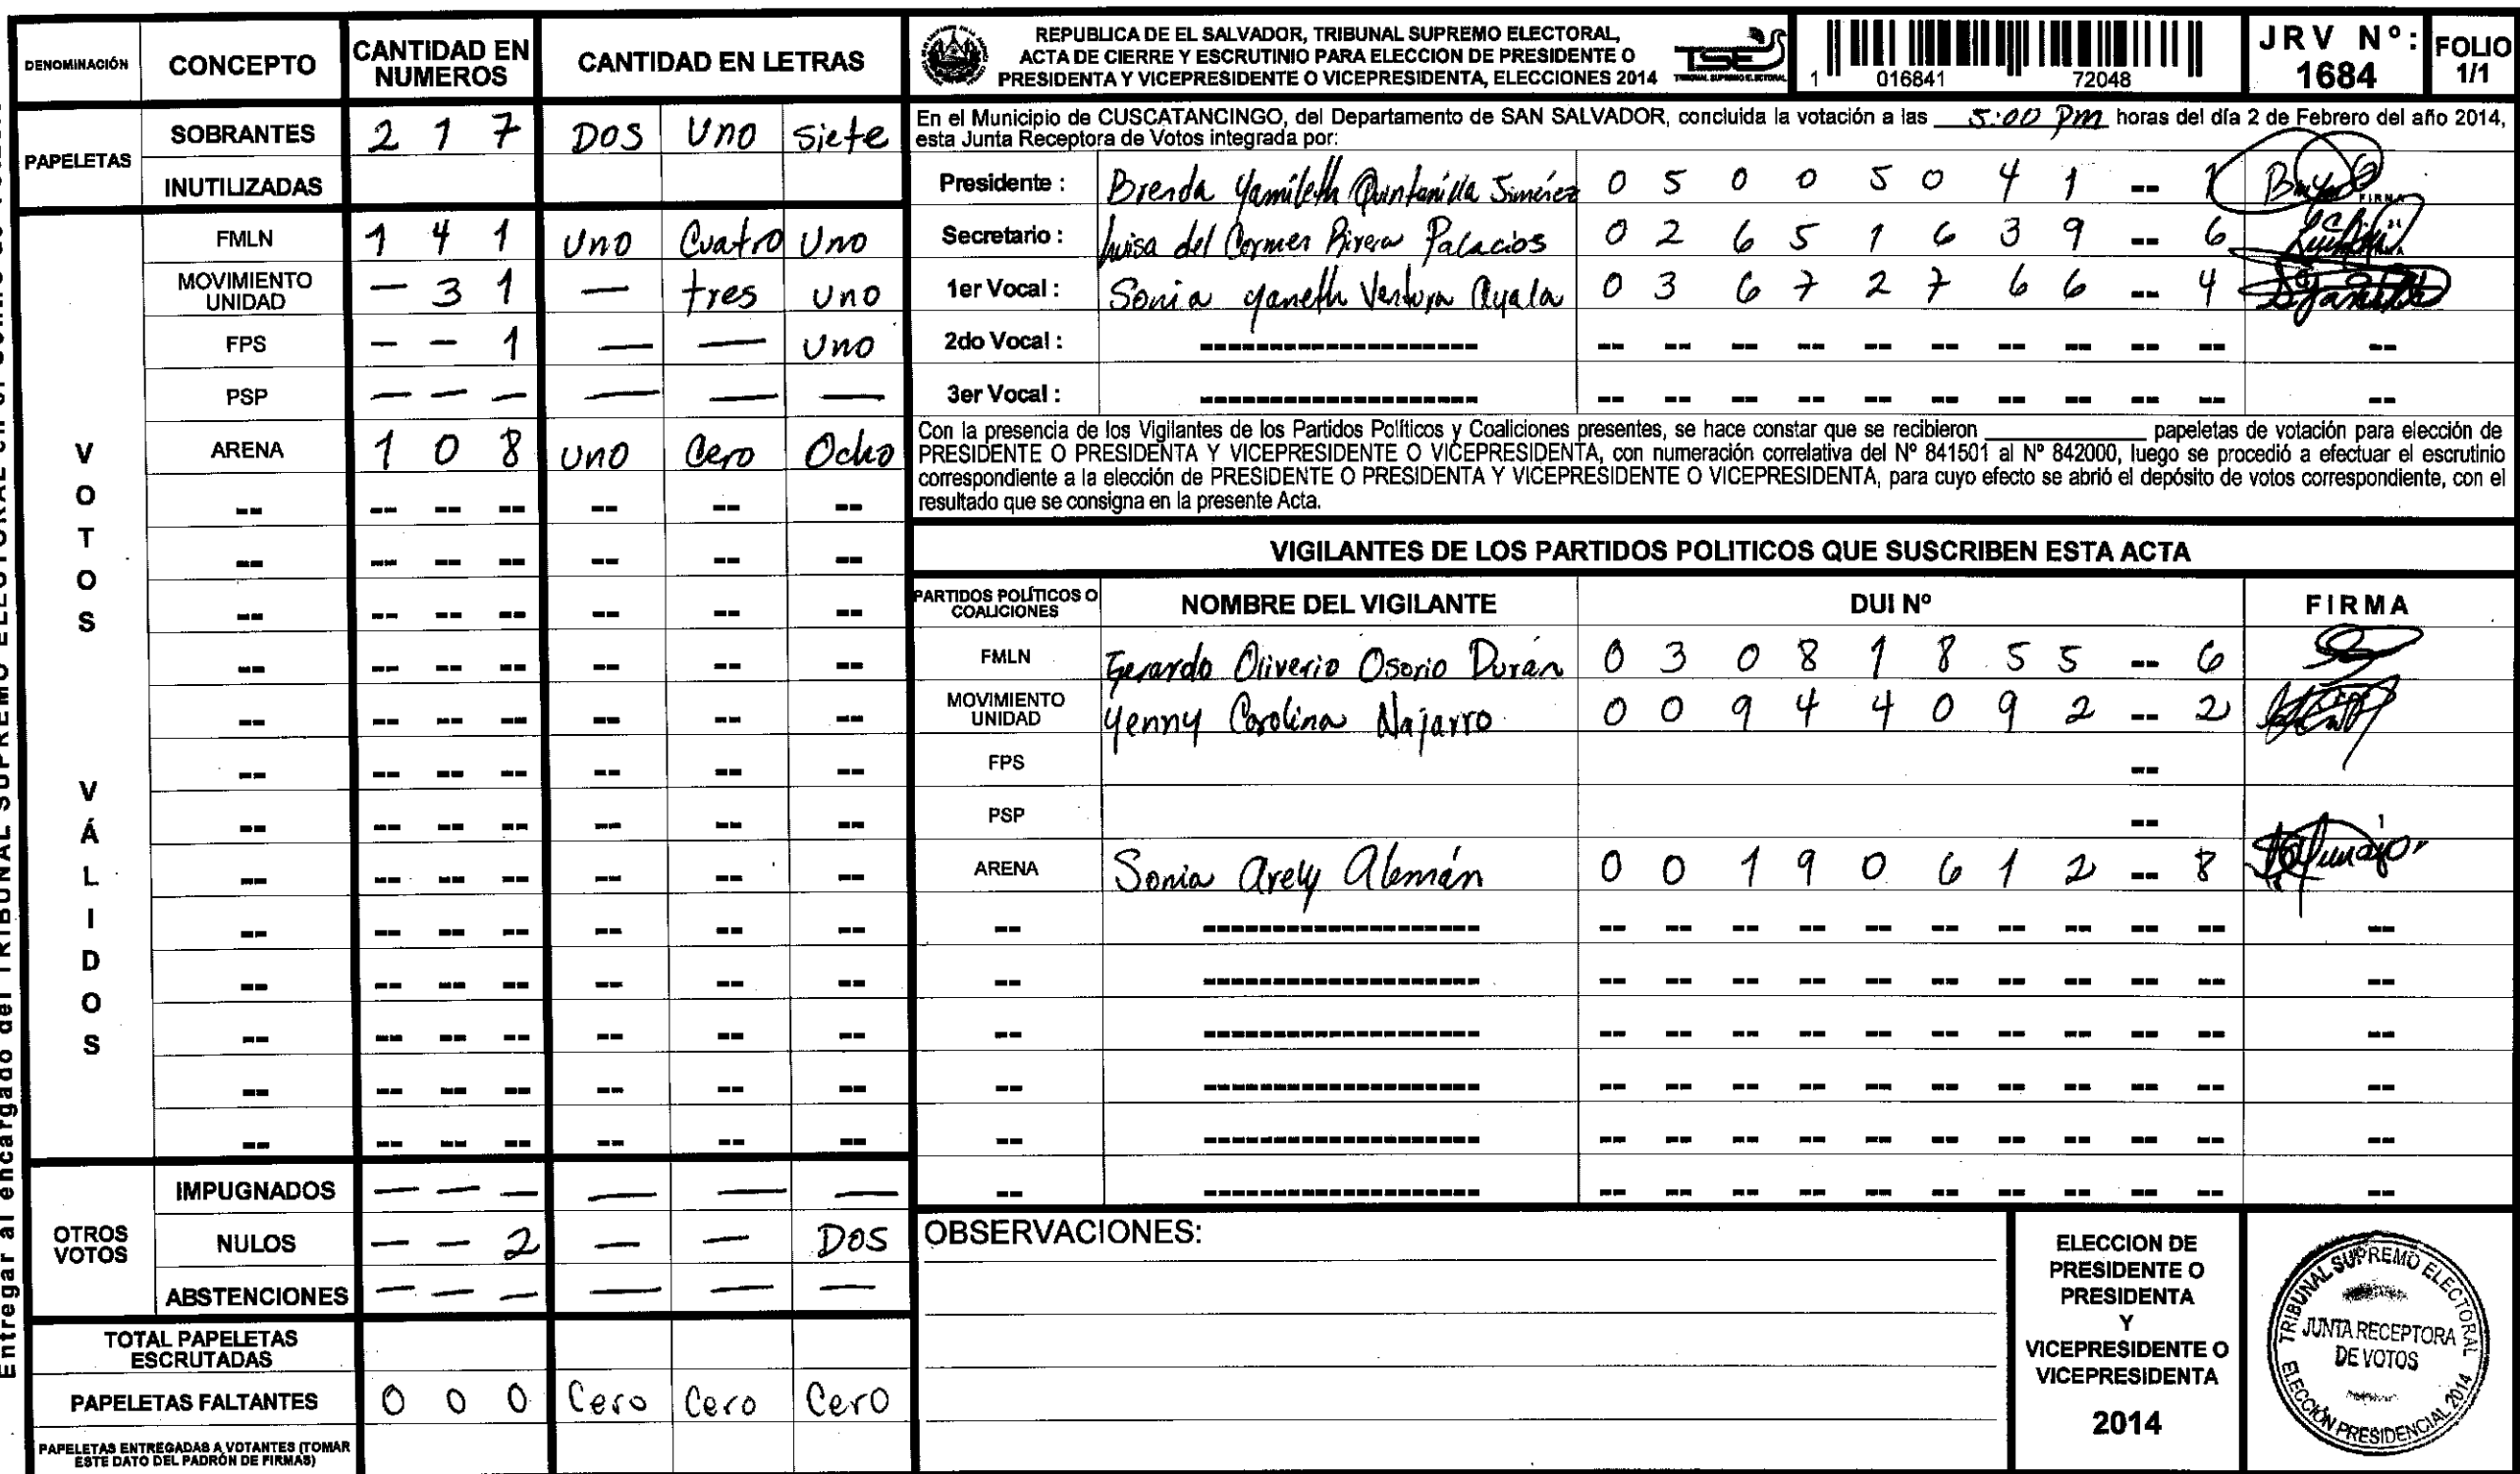 DENOMINACIÓN CONCEPTO CANTIDAD EN NUMEROS CANTIDAD EN LETRAS
PAPELETAS
SOBRANTES 2 1 7 DOS Uno Siete
INUTILIZADAS
VOTOS VÁLIDOS
FMLN 1 4 1 Uno Cuatro Uno
MOVIMIENTO UNIDAD — 3 1 — tres uno
FPS — — 1 — — Uno
PSP — — — — — —
ARENA 1 0 8 uno Cero Ocho
-- -- -- -- -- -- --
-- -- -- -- -- -- --
-- -- -- -- -- -- --
-- -- -- -- -- -- --
-- -- -- -- -- -- --
-- -- -- -- -- -- --
-- -- -- -- -- -- --
-- -- -- -- -- -- --
-- -- -- -- -- -- --
-- -- -- -- -- -- --
-- -- -- -- -- -- --
-- -- -- -- -- -- --
-- -- -- -- -- -- --
OTROS VOTOS
IMPUGNADOS — — — — — —
NULOS — — 2 — — DOS
ABSTENCIONES — — — — — —
TOTAL PAPELETAS ESCRUTADAS
PAPELETAS FALTANTES 0 0 0 Cero Cero Cero
PAPELETAS ENTREGADAS A VOTANTES (TOMAR
ESTE DATO DEL PADRÓN DE FIRMAS)
REPUBLICA DE EL SALVADOR, TRIBUNAL SUPREMO ELECTORAL,
ACTA DE CIERRE Y ESCRUTINIO PARA ELECCION DE PRESIDENTE O
PRESIDENTA Y VICEPRESIDENTE O VICEPRESIDENTA, ELECCIONES 2014
TSE
TRIBUNAL SUPREMO ELECTORAL
1 016841 72048
JRV Nº: 1684
FOLIO 1/1
En el Municipio de CUSCATANCINGO, del Departamento de SAN SALVADOR, concluida la votación a las 5:00 Pm horas del día 2 de Febrero del año 2014,
esta Junta Receptora de Votos integrada por:
Presidente : Brenda Yamileth Quintanilla Jiménez 0 5 0 0 5 0 4 1 -- 1 FIRMA
Secretario : Luisa del Carmen Rivera Palacios 0 2 6 5 1 6 3 9 -- 6
1er Vocal : Sonia Yaneth Ventura Ayala 0 3 6 7 2 7 6 6 -- 4
2do Vocal : -------------------- -- -- -- -- -- -- -- -- -- -- --
3er Vocal : -------------------- -- -- -- -- -- -- -- -- -- -- --
Con la presencia de los Vigilantes de los Partidos Políticos y Coaliciones presentes, se hace constar que se recibieron ____________ papeletas de votación para elección de
PRESIDENTE O PRESIDENTA Y VICEPRESIDENTE O VICEPRESIDENTA, con numeración correlativa del Nº 841501 al Nº 842000, luego se procedió a efectuar el escrutinio
correspondiente a la elección de PRESIDENTE O PRESIDENTA Y VICEPRESIDENTE O VICEPRESIDENTA, para cuyo efecto se abrió el depósito de votos correspondiente, con el
resultado que se consigna en la presente Acta.
VIGILANTES DE LOS PARTIDOS POLITICOS QUE SUSCRIBEN ESTA ACTA
PARTIDOS POLÍTICOS O COALICIONES NOMBRE DEL VIGILANTE DUI Nº FIRMA
FMLN Gerardo Oliverio Osorio Durán 0 3 0 8 1 8 5 5 -- 6
MOVIMIENTO UNIDAD Yenny Carolina Najarro 0 0 9 4 4 0 9 2 -- 2
FPS --
PSP --
ARENA Sonia Arely Alemán 0 0 1 9 0 6 1 2 -- 8
-- -------------------- -- -- -- -- -- -- -- -- -- -- --
-- -------------------- -- -- -- -- -- -- -- -- -- -- --
-- -------------------- -- -- -- -- -- -- -- -- -- -- --
-- -------------------- -- -- -- -- -- -- -- -- -- -- --
-- -------------------- -- -- -- -- -- -- -- -- -- -- --
-- -------------------- -- -- -- -- -- -- -- -- -- -- --
OBSERVACIONES:
ELECCION DE
PRESIDENTE O
PRESIDENTA
Y
VICEPRESIDENTE O
VICEPRESIDENTA
2014
TRIBUNAL SUPREMO ELECTORAL
JUNTA RECEPTORA
DE VOTOS
ELECCIÓN PRESIDENCIAL 2014
Entregar al encargado del TRIBUNAL SUPREMO ELECTORAL en el